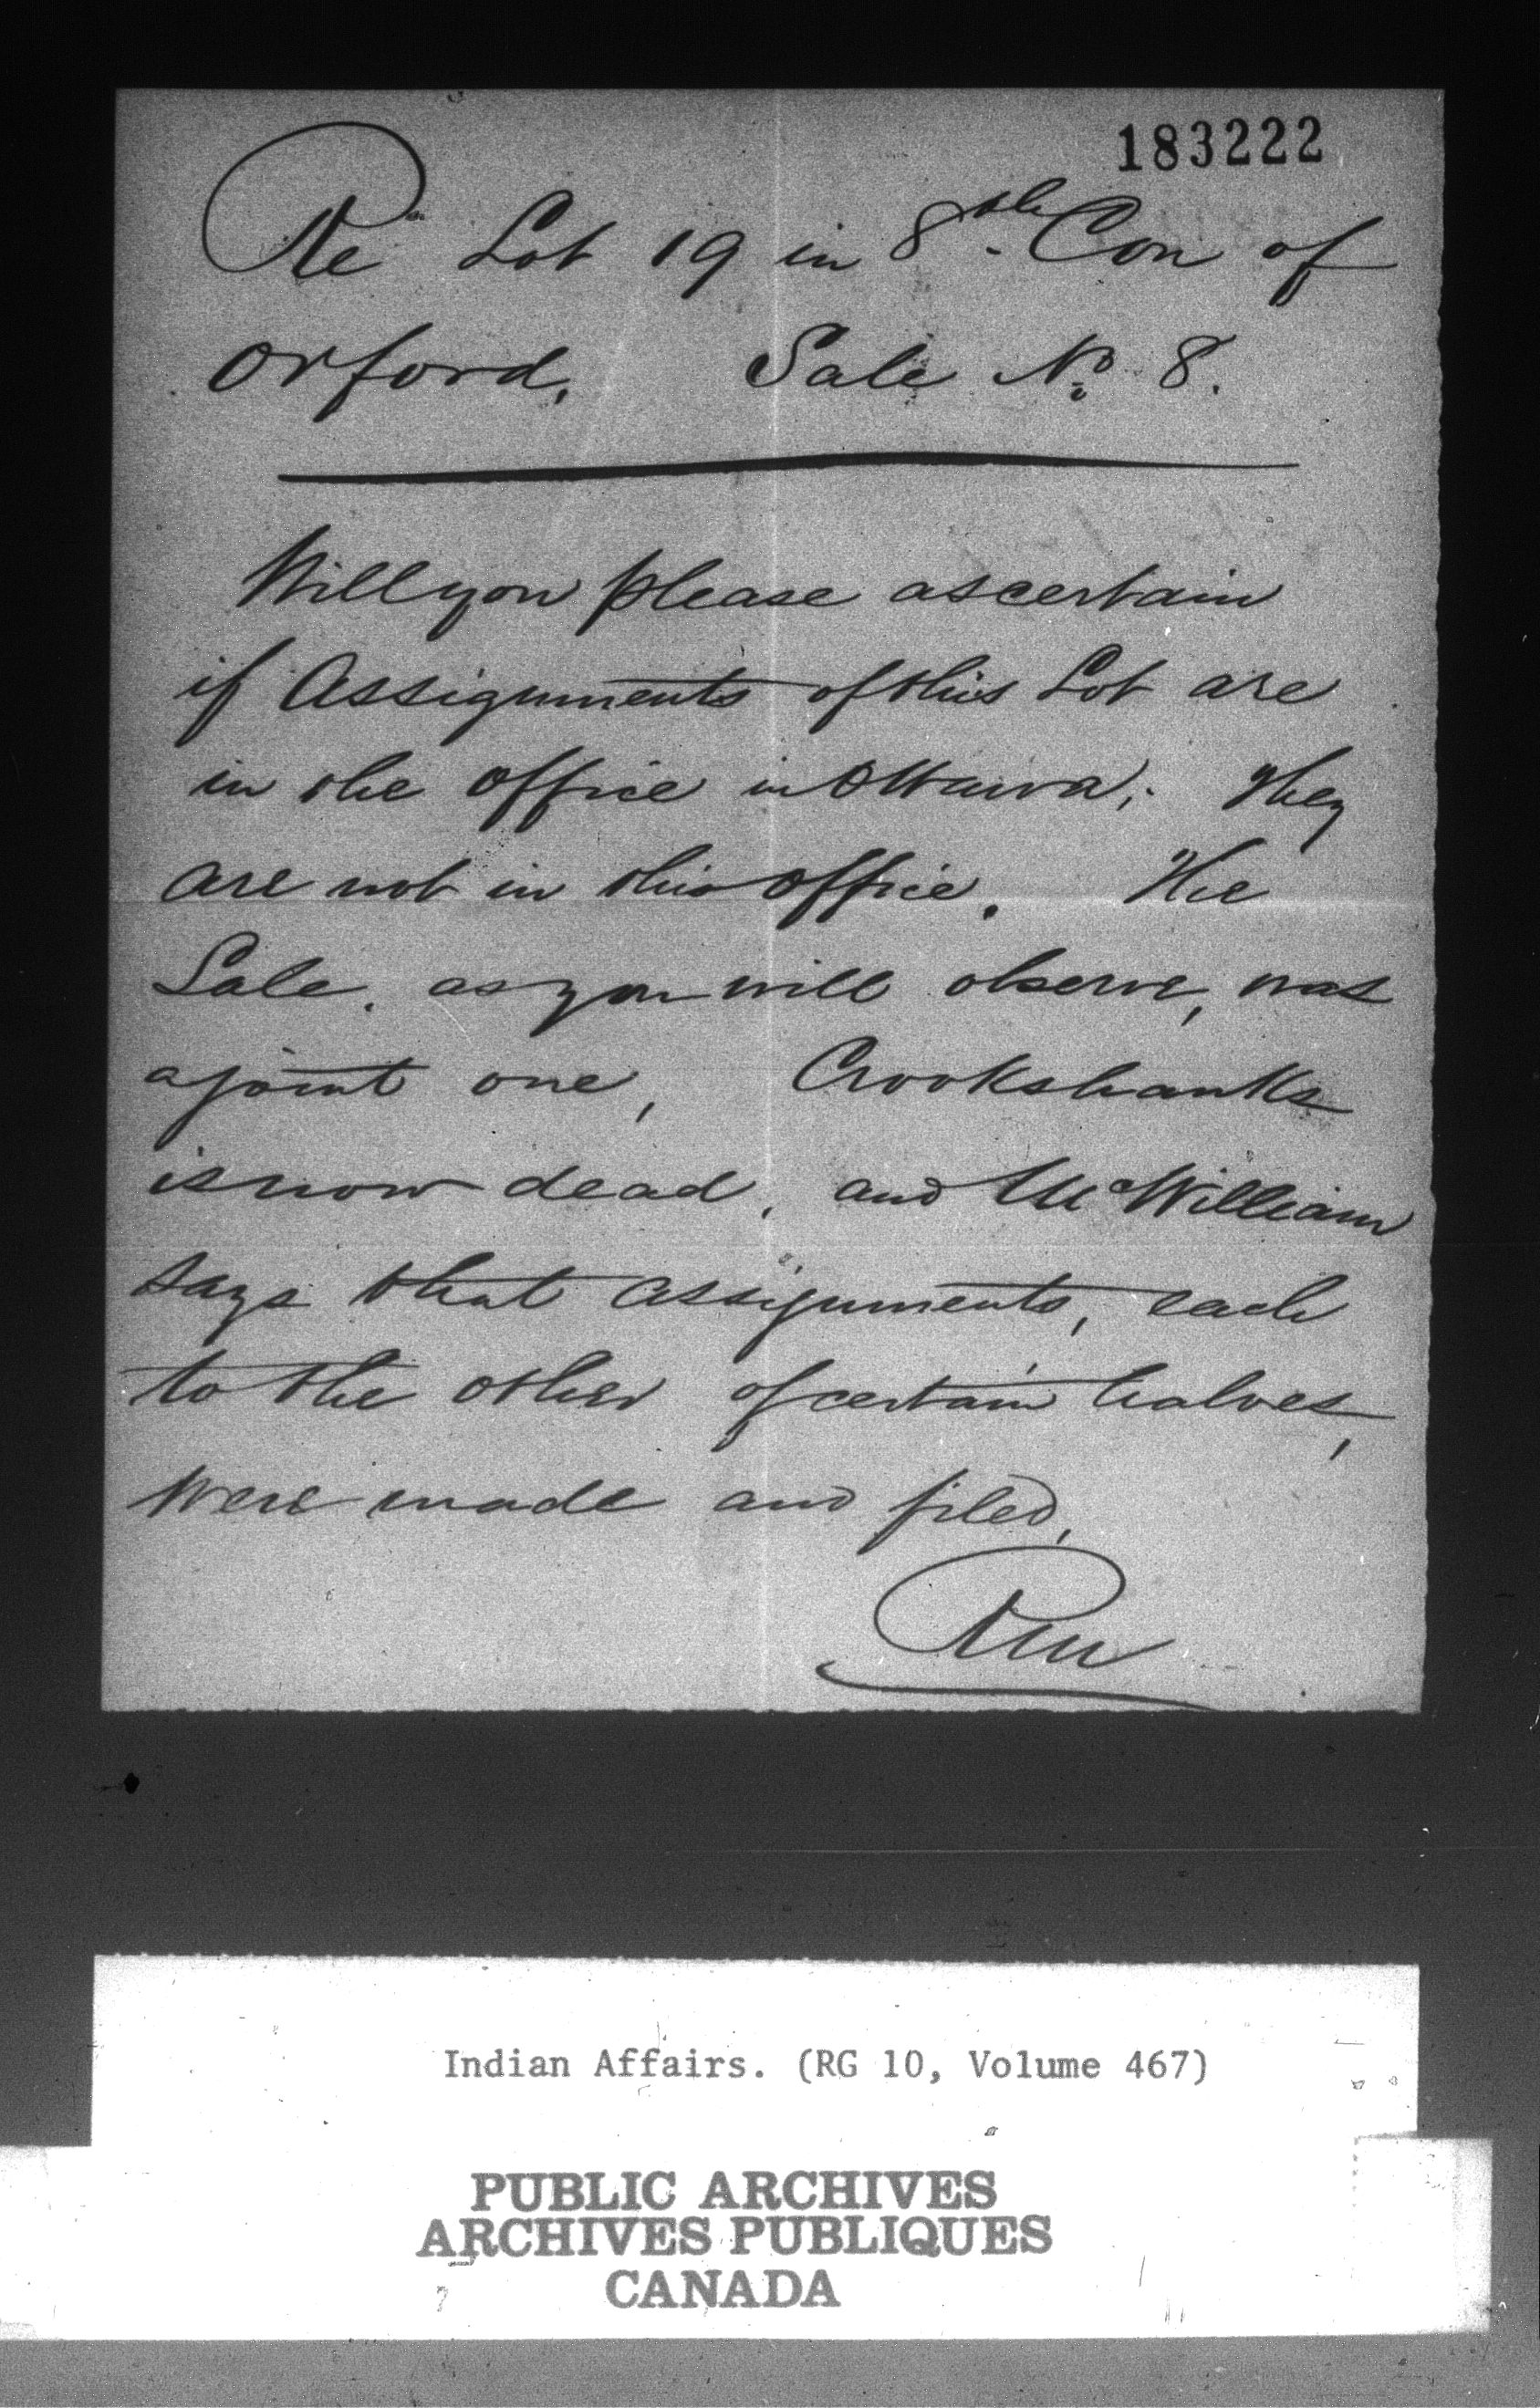 183222
Re Lot 19 in 8th Con of
Orford. Sale No 8.
Will you please ascertain
if Assignments of this Lot are
in the office in Ottawa; They
are not in this office. The
Sale, as you will observe, was
a joint one, Crookshanks
is now dead, and McWilliam
says that assignments, each
to the other of certain halves,
were made and filed.
Indian Affairs. (RG 10, Volume 467)
PUBLIC ARCHIVES
ARCHIVES PUBLIQUES
CANADA